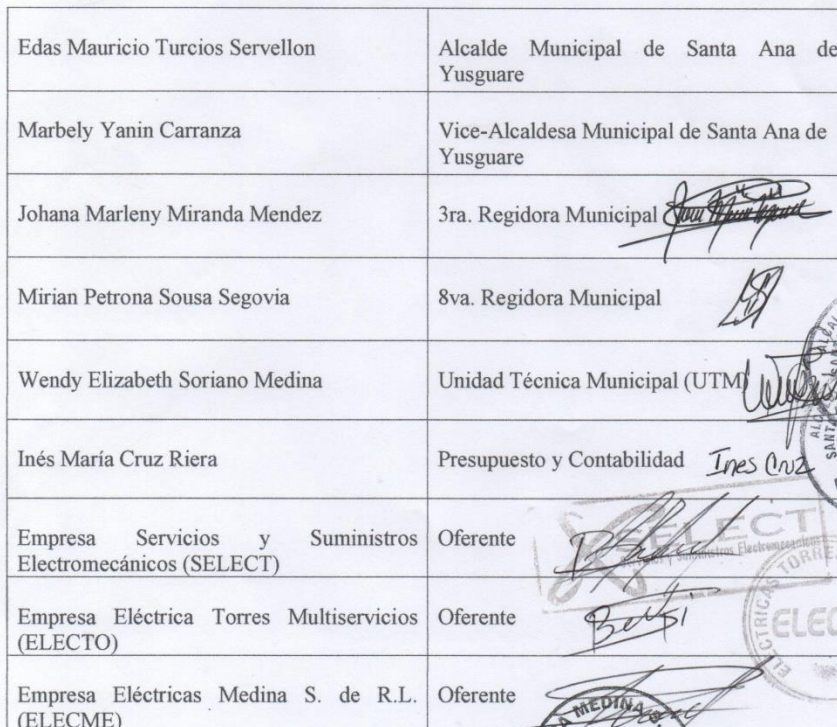 Edas Mauricio Turcios Servellon
Alcalde Municipal de Santa Ana de
Yusguare
Marbely Yanin Carranza
Vice-Alcaldesa Municipal de Santa Ana de
Yusguare
Johana Marleny Miranda Mendez
3ra. Regidora Municipal
Mirian Petrona Sousa Segovia
8va. Regidora Municipal
Wendy Elizabeth Soriano Medina
Unidad Técnica Municipal (UTM)
Inés María Cruz Riera
Presupuesto y Contabilidad
Ines Cruz
Empresa Servicios y Suministros
Electromecánicos (SELECT)
Oferente
SELECT
Suministros Electromecánicos
Empresa Eléctrica Torres Multiservicios
(ELECTO)
Oferente
Empresa Eléctricas Medina S. de R.L.
(ELECME)
Oferente
MEDINA